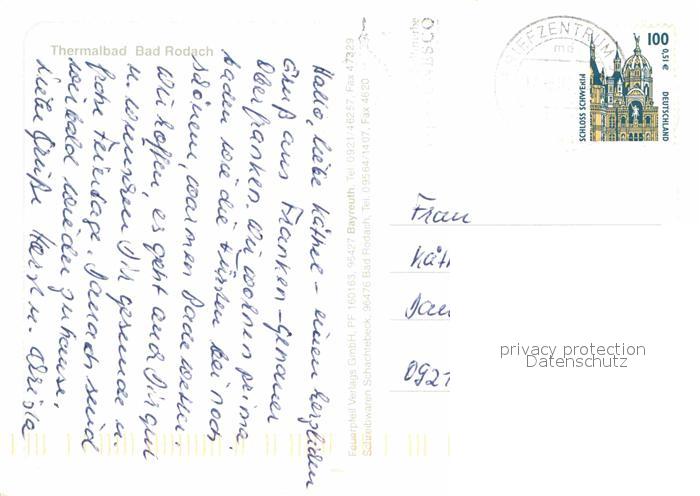 Thermalbad Bad Rodach
Hallo, liebe Käthel - einen herzlichen
Gruß aus Franken - Genauer
Oberfranken. Wir wohnen prima,
baden wie die Fürsten bei noch
schönem, warmen Badewetter.
Wir hoffen, es geht auch Dir gut
u. wünschen Dir gesunde u.
frohe Feiertage. Danach sind
wir bald wieder zuhause.
Liebe Grüße Horst u. Krista
Feuerpfeil Verlags GmbH, PF 160163, 95427 Bayreuth, Tel. 0921/46267, Fax 47329
Schreibwaren Schachtebeck, 96476 Bad Rodach, Tel. 09564/1 Fax 4620
ESCO
IEFZENTRUM
100
0,51 €
SCHLOSS SCHWERIN
DEUTSCHLAND
Frau
Kät
Dan
0921
privacy protection
Datenschutz